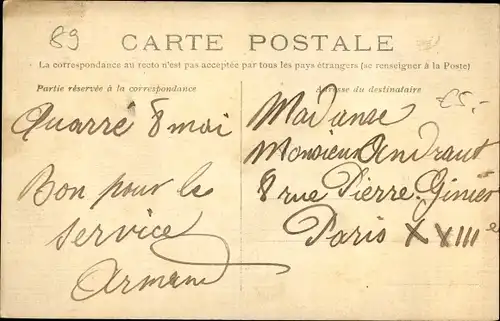 89
CARTE POSTALE
La correspondance au recto n'est pas acceptée par tous les pays étrangers (se renseigner à la Poste)
Partie réservée à la correspondance
Adresse du destinataire
Quarré 8 mai
Bon pour le
service
Armand
Madame
Monsieur Andraut
8 rue Pierre Ginier
Paris XVIIIe